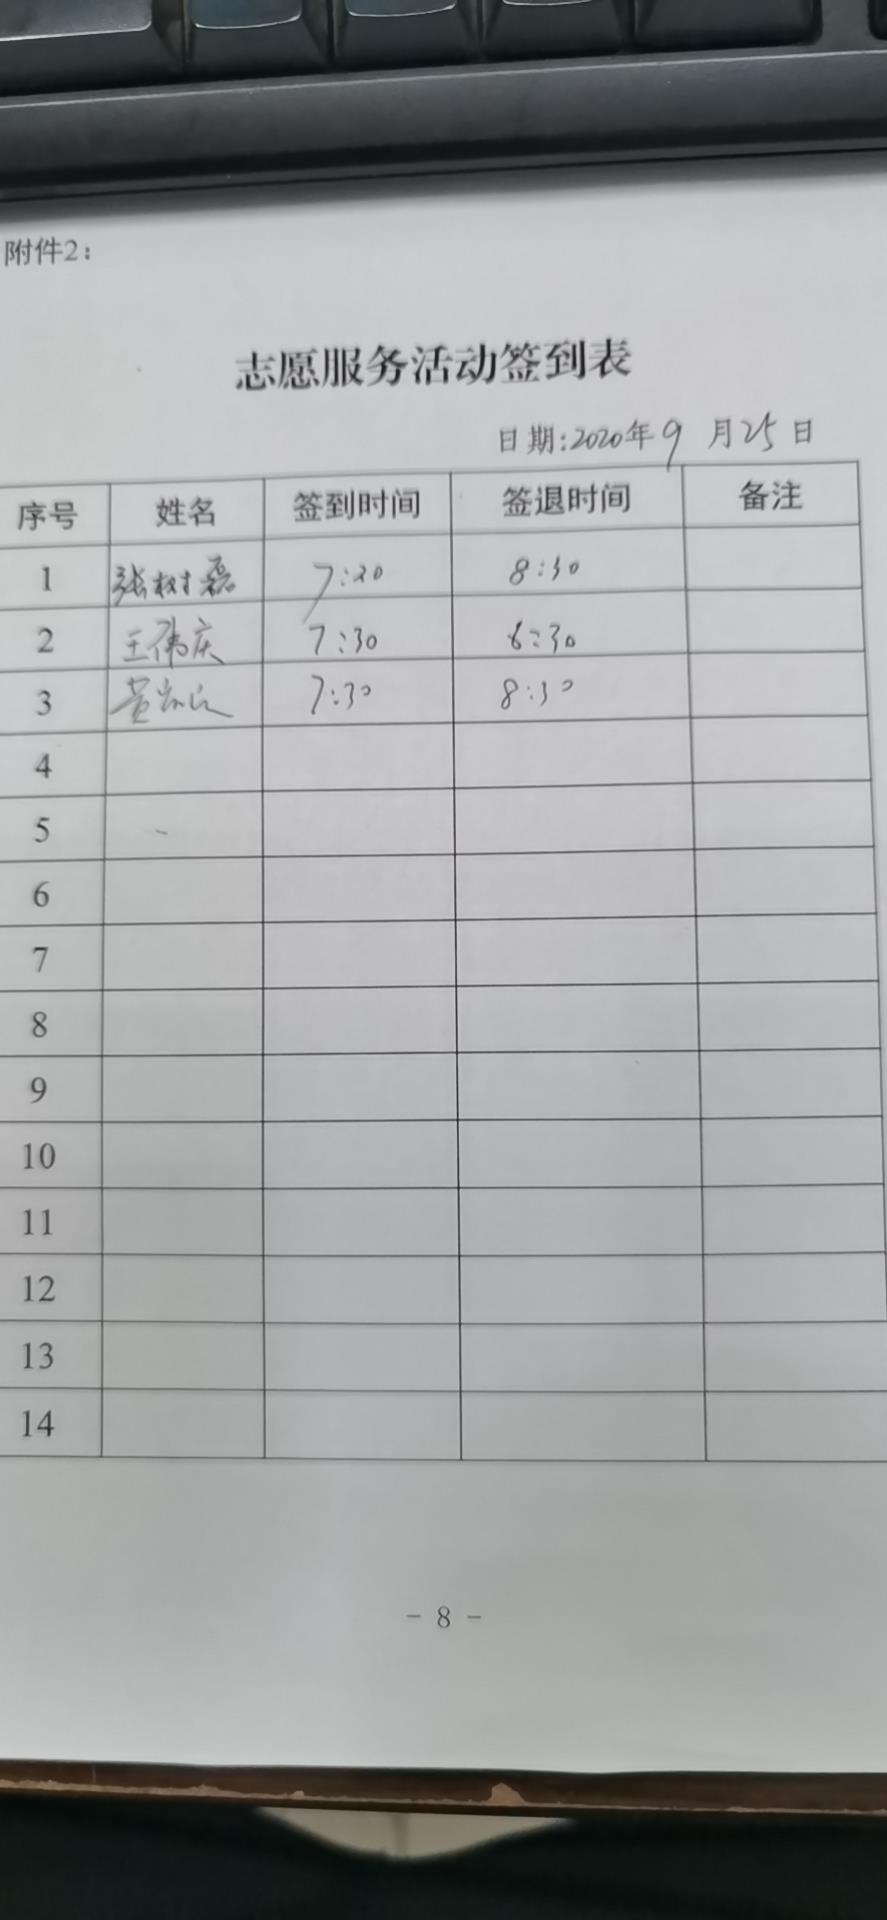 附件2：
志愿服务活动签到表
日期:2020年9月25日
序号 姓名 签到时间 签退时间 备注
1 张树磊 7:30 8:30
2 王伟庆 7:30 8:30
3 黄 7:30 8:30
4
5
6
7
8
9
10
11
12
13
14
- 8 -